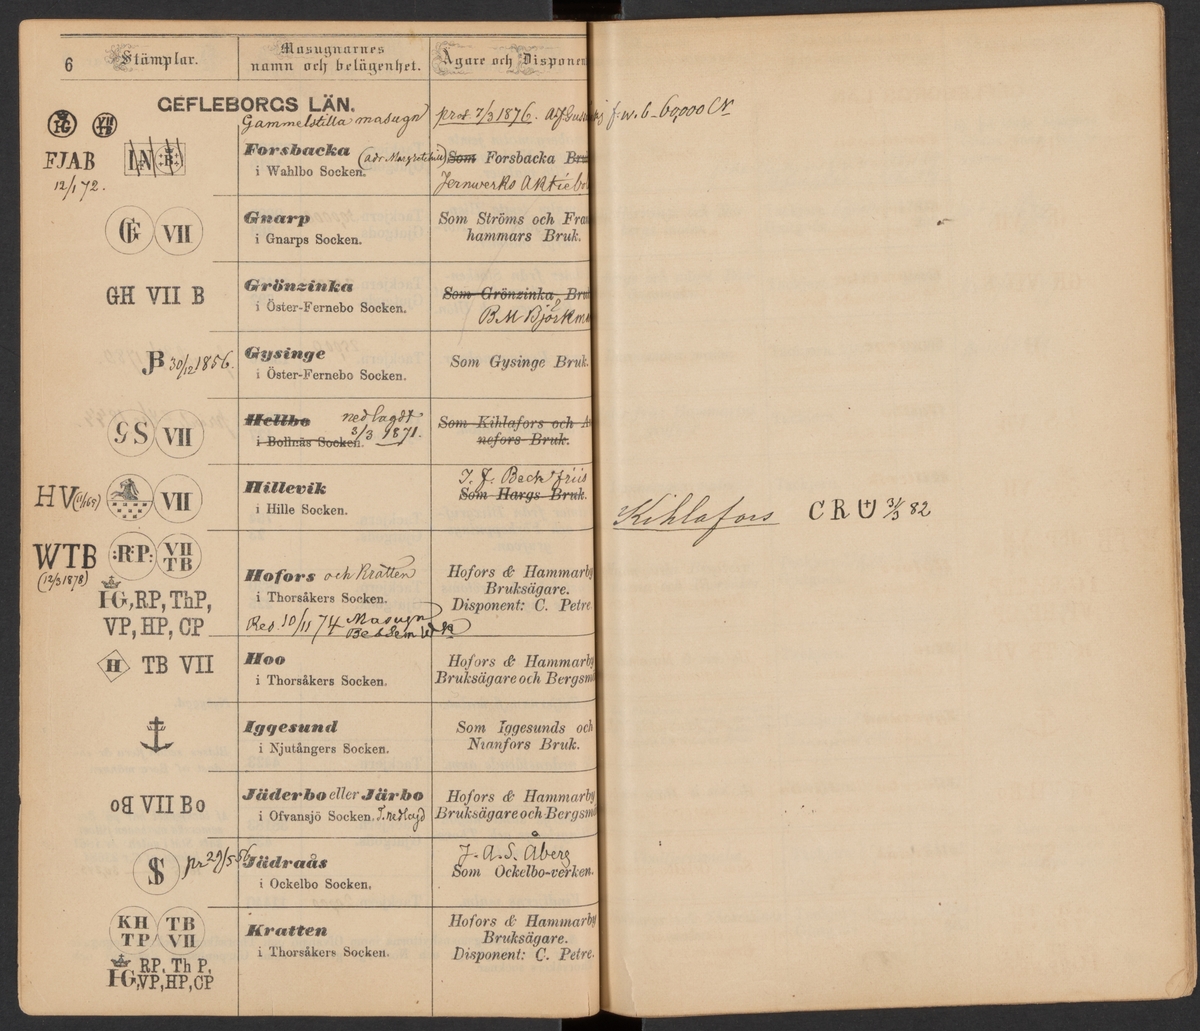 6
Stämplar.
Masugnarnes
namn och belägenhet.
Ägare och Disponen
GEFLEBORGS LÄN.
Gammelstilla masugn
prot 7/3 1876.
f. w. b 60,000 Ctr
FJAB
12/1 72.
IN B
Forsbacka (adr. Margretehill)
i Wahlbo Socken.
Som Forsbacka Bru
Jernwerks Aktiebo
GF VII
Gnarp
i Gnarps Socken.
Som Ströms och Fran
hammars Bruk.
GH VII B
Grönzinka
i Öster-Fernebo Socken.
Som Grönzinka Bru
B M Björkman
JB 30/12 1856.
Gysinge
i Öster-Fernebo Socken.
Som Gysinge Bruk.
GS VII
Hellbo nedlagdt
i Bollnäs Socken. 3/3 1871.
Som Kihlafors och A
nefors Bruk.
HV (11/1 65) VII
Hillevik
i Hille Socken.
J. F. Beck friis
Som Hargs Bruk.
WTB
(12/3 1878)
:RP: VII TB
FG, RP, ThP,
VP, HP, CP
Hofors och Kratten
i Thorsåkers Socken.
Res. 10/11 74 Masugn
Bessem Wk
Hofors & Hammarby
Bruksägare.
Disponent: C. Petre.
H TB VII
Hoo
i Thorsåkers Socken.
Hofors & Hammarby
Bruksägare och Bergsm
Iggesund
i Njutångers Socken.
Som Iggesunds och
Nianfors Bruk.
oB VII Bo
Jäderbo eller Järbo
i Ofvansjö Socken. nedlagd
Hofors & Hammarby
Bruksägare och Bergsm
S pr 29/5 56
Jädraås
i Ockelbo Socken.
J. A. S. Åberg
Som Ockelbo-verken.
KH TP TB VII
FG, RP, Th P,
VP, HP, CP
Kratten
i Thorsåkers Socken.
Hofors & Hammarby
Bruksägare.
Disponent: C. Petre.
Kihlafors CRU 3/3 82